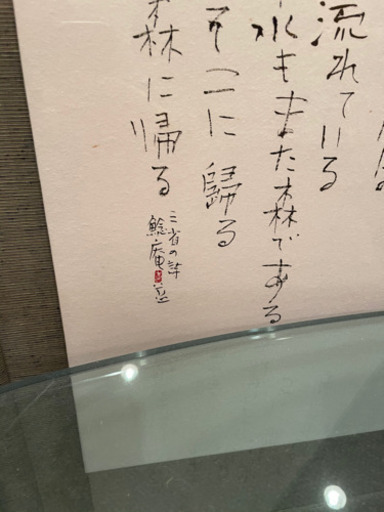 流れている
水もまた森である
そこに歸る
森に帰る
三省の詩
鯰庵